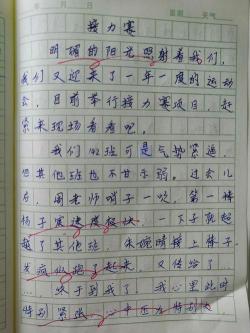 年 月 日 星期 天气
接力赛
明媚的阳光照射着我们,
我们又迎来了一年一度的运动
会,目前举行接力赛项目,赶
紧来现场看看吧。
我们142班可是气势紧逼,
但其他班也不甘示弱。过去儿
,周老师哨子一吹,第一棒
杨子 速度极快,一下子就超
越了其他班,朱婉晴接上棒子,
发疯似地跑了起来,又传给了
……终于到我了!我心里此时
特别紧张,心中压力特别大